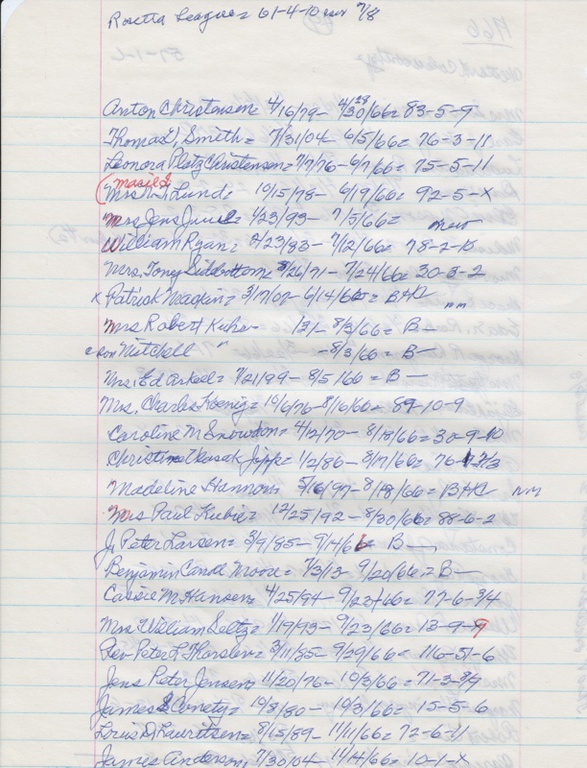 Rosetta League = 61-4-10 new 7/8
Anton Christensen = 4/16/79 - 4/30/66 = 83-5-9
29
Thomas Smith = 7/31/04 - 6/5/66 = 76-3-11
Leonora Plotz Christensen = 7/7/76 - 6/7/66 = 75-5-11
Mrs Lund = 10/15/78 - 6/19/66 = 92-5-X
Mrs Jens Juul = 1/23/93 - 7/5/66 =
William Ryan = 2/23/83 - 7/12/66 = 78-2-
Mrs. Tony Sidbottom = 5/26/71 - 7/24/66 = 30-3-2
x Patrick Magkin = 3/17/07 - 6/14/66 = B+K nm
Mrs Robert Kuhn - 8/3/66 = B -
son Mitchell " - 8/3/66 = B -
Mrs. Ed = 7/21/99 - 8/5/66 = B -
Mrs. Charles Koenig = 10/6/76 - 8/16/66 = 89-10-9
Caroline M Snowdon = 4/2/70 - 8/18/66 = 30-9-10
Christina Jipp = 1/2/86 - 8/17/66 = 76-
Madeline Hannon = 5/16/97 - 8/18/66 = B+K nm
Mrs Paul Kubie = 12/25/92 - 8/20/66 = 88-6-2
J. Peter Larsen = 3/9/85 - 9/14/66 = B -
Benjamin Moore = 7/3/13 - 9/20/66 = B -
Cassie M. Hansen = 4/25/94 - 9/22/66 = 77-6-3/4
Mrs William Seltz = 1/19/93 - 9/23/66 = 13-9-9
Rev Peter L Thorslev = 3/11/85 - 9/29/66 = 116-51-6
Jens Peter Jensen = 11/20/76 - 10/2/66 = 71-3-8/9
James Conety = 10/8/80 - 10/3/66 = 15-5-6
Louis D. Lauritsen = 8/15/89 - 11/1/66 = 72-6-11
James Anderson, 7/30/04 - 11/14/66 = 10-1-X